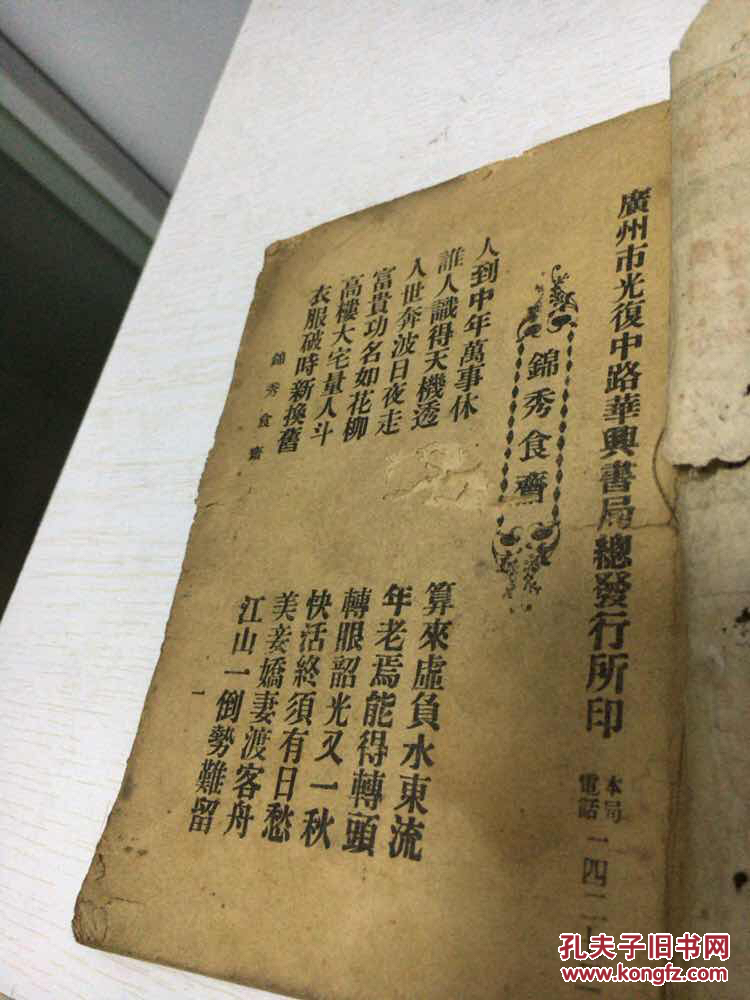 廣州市光復中路華興書局總發行所印
本局
電話一四二
錦秀食齋
人到中年萬事休
算來虛負水東流
誰人識得天機透
年老焉能得轉頭
人世奔波日夜走
轉眼韶光又一秋
富貴功名如花柳
快活終須有日愁
高樓大宅量人斗
美妾嬌妻渡客舟
衣服破時新換舊
江山一倒勢難留
錦秀食齋
一
孔夫子旧书网
www.kongfz.com